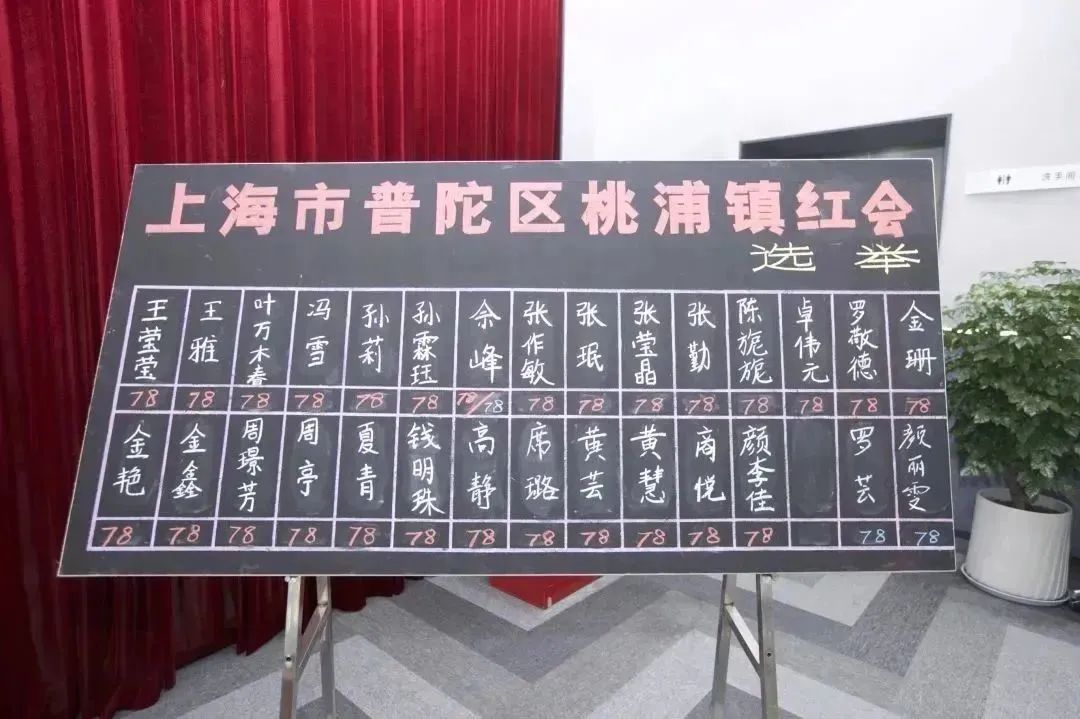 上海市普陀区桃浦镇红会
选举
王莹莹 王雅 叶万木春 冯雪 孙莉 孙霖珏 余峰 张作敏 张珉 张莹晶 张勤 陈旎旎 卓伟元 罗敬德 金珊
78 78 78 78 78 78 78/78 78 78 78 78 78 78 78 78
金艳 金鑫 周璟芳 周亭 夏青 钱明珠 高静 席璐 黄芸 黄慧 商悦 颜李佳 罗芸 颜丽雯
78 78 78 78 78 78 78 78 78 78 78 78 78 78
洗手间